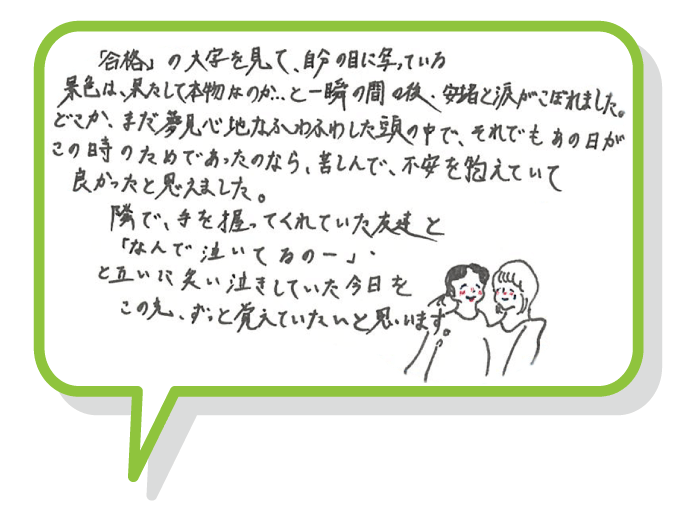 「合格」の大字を見て、自分の目に写っている
景色は、果たして本物なのか…と一瞬の間の後、安堵と涙がこぼれました。
どこか、まだ夢見心地なふわふわした頭の中で、それでもあの日が
この時のためであったのなら、苦しんで、不安を抱えていて
良かったと思えました。
隣で、手を握ってくれていた友達と
「なんで泣いてるのー」、
と互いに笑い泣きしていた今日を
この先、ずっと覚えていたいと思います。